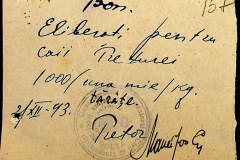 Bon.
157
Eliberați pentru
caii Preturei
1000/una mie/kg.
tărâțe.
2/XII-93.
Pretor